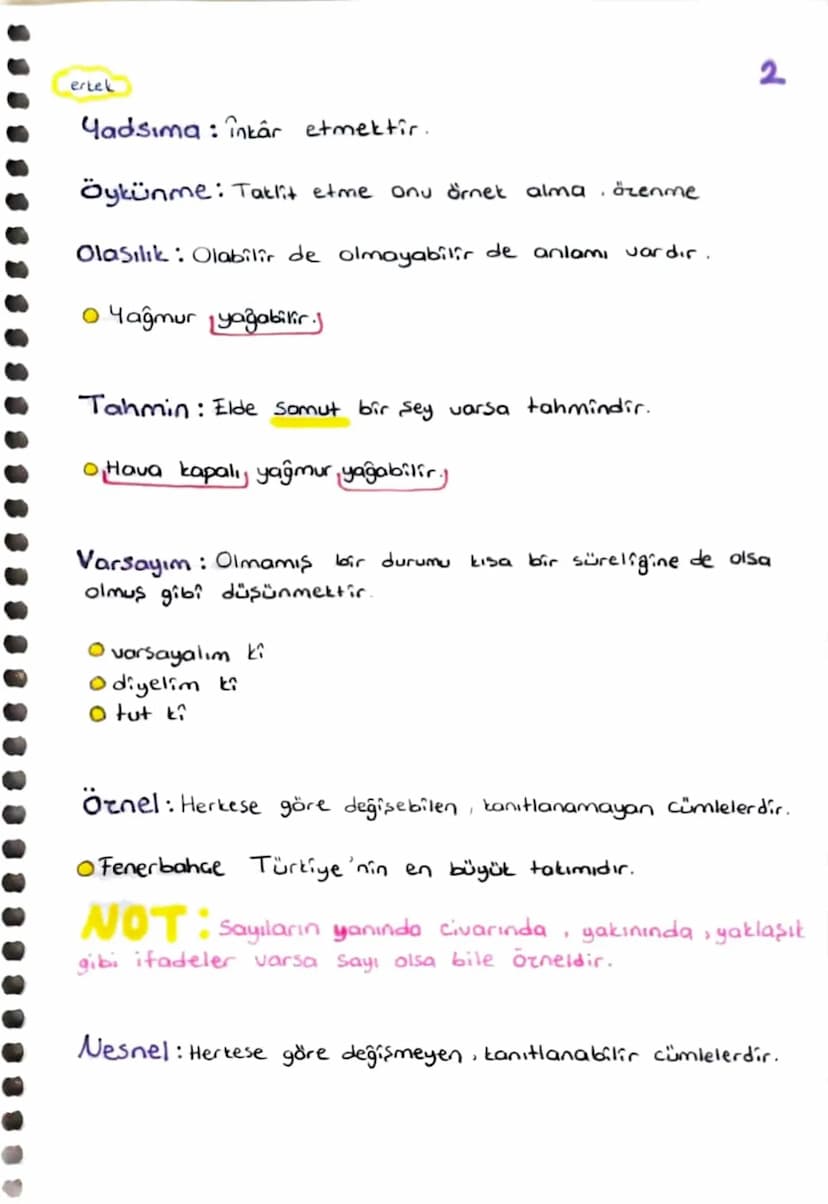 2
ertek
Yadsıma : înkâr etmektir.
Öykünme : Taklit etme onu örnek alma , özenme
Olasılık : Olabilir de olmayabilir de anlamı vardır.
Yağmur yağabilir.
Tahmin : Elde somut bir şey varsa tahmindir.
Hava kapalı, yağmur yağabilir.
Varsayım : Olmamış bir durumu kısa bir süreliğine de olsa
olmuş gibi düşünmektir.
varsayalım ki
diyelim ki
tut ki
Öznel : Herkese göre değişebilen , kanıtlanamayan cümlelerdir.
Fenerbahçe Türkiye'nin en büyük takımıdır.
NOT : Sayıların yanında civarında , yakınında , yaklaşık
gibi ifadeler varsa sayı olsa bile özneldir.
Nesnel : Herkese göre değişmeyen , kanıtlanabilir cümlelerdir.